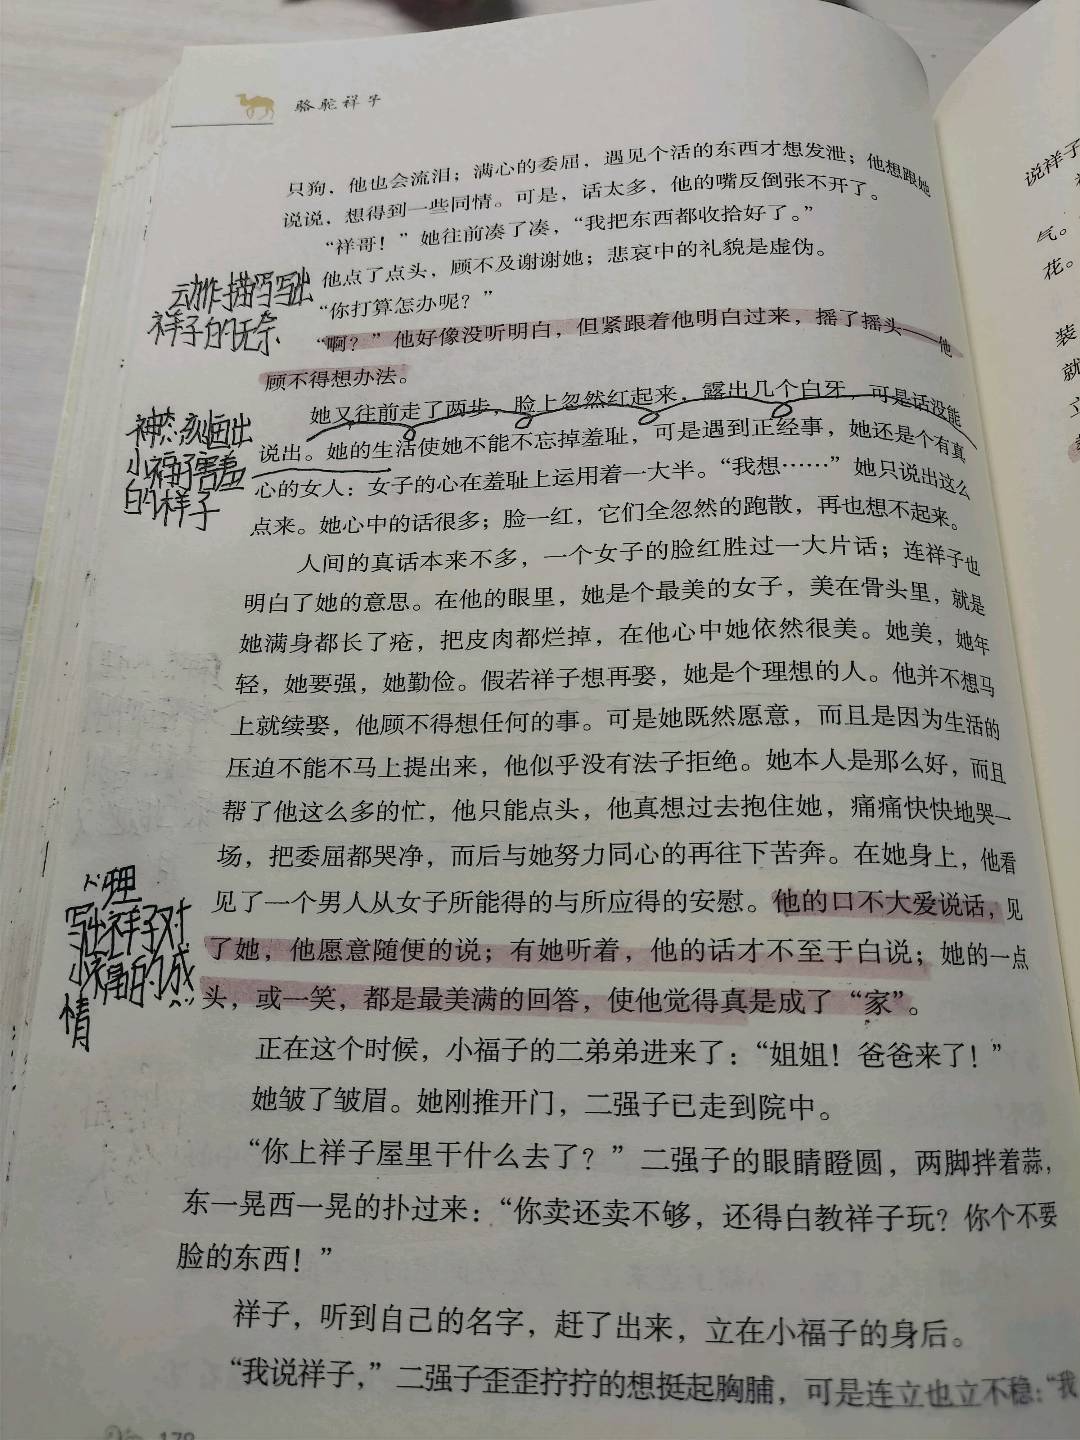 骆驼祥子
只狗，他也会流泪；满心的委屈，遇见个活的东西才想发泄；他想跟她
说说，想得到一些同情。可是，话太多，他的嘴反倒张不开了。
“祥哥！”她往前凑了凑，“我把东西都收拾好了。”
他点了点头，顾不及谢谢她；悲哀中的礼貌是虚伪。
“你打算怎办呢？”
“啊？”他好像没听明白，但紧跟着他明白过来，摇了摇头——他
顾不得想办法。
她又往前走了两步，脸上忽然红起来，露出几个白牙，可是话没能
说出。她的生活使她不能不忘掉羞耻，可是遇到正经事，她还是个有真
心的女人：女子的心在羞耻上运用着一大半。“我想……”她只说出这么
点来。她心中的话很多；脸一红，它们全忽然的跑散，再也想不起来。
人间的真话本来不多，一个女子的脸红胜过一大片话；连祥子也
明白了她的意思。在他的眼里，她是个最美的女子，美在骨头里，就是
她满身都长了疮，把皮肉都烂掉，在他心中她依然很美。她美，她年
轻，她要强，她勤俭。假若祥子想再娶，她是个理想的人。他并不想马
上就续娶，他顾不得想任何的事。可是她既然愿意，而且是因为生活的
压迫不能不马上提出来，他似乎没有法子拒绝。她本人是那么好，而且
帮了他这么多的忙，他只能点头，他真想过去抱住她，痛痛快快地哭一
场，把委屈都哭净，而后与她努力同心的再往下苦奔。在她身上，他看
见了一个男人从女子所能得的与所应得的安慰。他的口不大爱说话，见
了她，他愿意随便的说；有她听着，他的话才不至于白说；她的一点
头，或一笑，都是最美满的回答，使他觉得真是成了“家”。
正在这个时候，小福子的二弟弟进来了：“姐姐！爸爸来了！”
她皱了皱眉。她刚推开门，二强子已走到院中。
“你上祥子屋里干什么去了？”二强子的眼睛瞪圆，两脚拌着蒜，
东一晃西一晃的扑过来：“你卖还卖不够，还得白教祥子玩？你个不要
脸的东西！”
祥子，听到自己的名字，赶了出来，立在小福子的身后。
“我说祥子，”二强子歪歪拧拧的想挺起胸脯，可是连立也立不稳：“我
178
动作描写写出
祥子的无奈
神态刻画出
小福子害羞
的样子
心理
写出祥子对
小福的感
情
说祥子
气。
花。
装
就
立